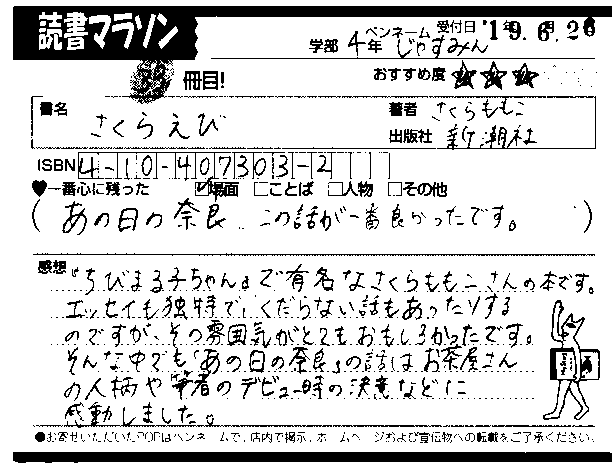 読書マラソン
学部 4年 ペンネーム じゃすみん 受付日 '19.6.26
冊目! おすすめ度 ★★★
書名 さくらえび 著者 さくらももこ
出版社 新潮社
ISBN 4-10-407303-2
♥一番心に残った ☑場面 □ことば □人物 □その他
(あの日の奈良 この話が一番良かったです。)
感想 『ちびまる子ちゃん』で有名なさくらももこさんの本です。
エッセイも独特で、くだらない話もあったりする
のですが、その雰囲気がとてもおもしろかったです。
そんな中でも「あの日の奈良」の話はお茶屋さん
の人柄や筆者のデビュー時の決意などに
感動しました。
●お寄せいただいたPOPはペンネームで、店内で掲示、ホームページおよび宣伝物への転載をご了承ください。